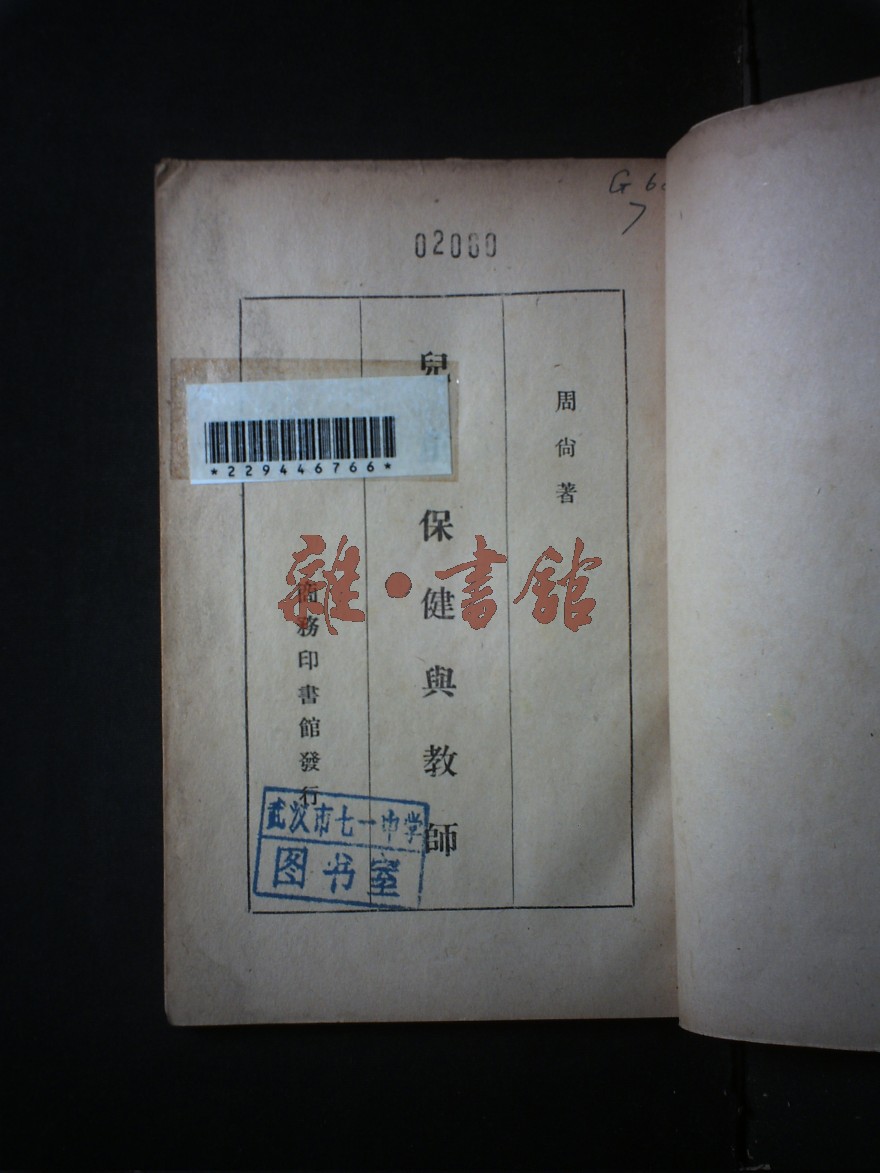 G 6
7
02060
周尙著
兒
保健與教師
商務印書館發行
*229446766*
雜·書館
武汉市七一中学
图书室